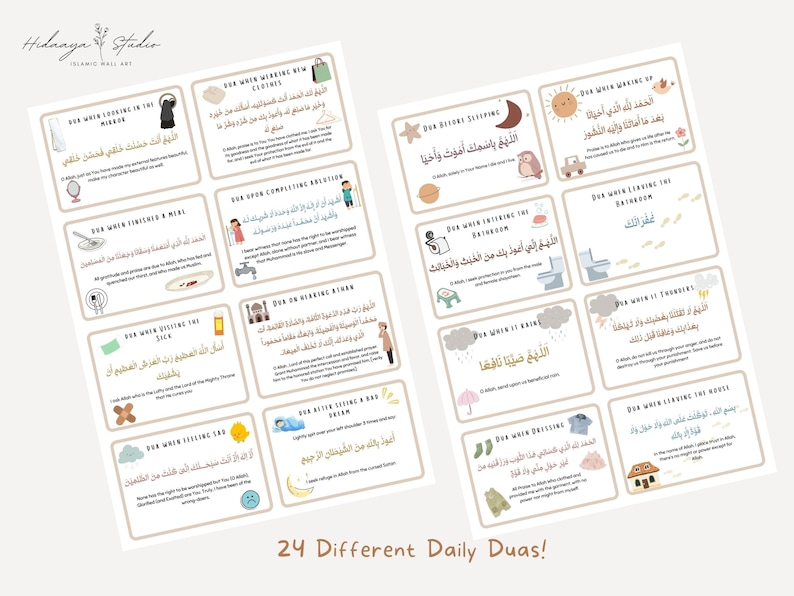 Hidaaya Studio
ISLAMIC WALL ART
DUA WHEN LOOKING IN THE
MIRROR
اللَّهُمَّ أَنْتَ حَسَّنْتَ خَلْقِي فَحَسِّنْ خُلُقِي
O Allah, just as You have made my external features beautiful,
make my character beautiful as well.
DUA WHEN WEARING NEW
CLOTHES
اللَّهُمَّ لَكَ الْحَمْدُ أَنْتَ كَسَوْتَنِيهِ، أَسْأَلُكَ مِنْ خَيْرِهِ
وَخَيْرِ مَا صُنِعَ لَهُ وَأَعُوذُ بِكَ مِنْ شَرِّهِ وَشَرِّ مَا
صُنِعَ لَهُ
O Allah, praise is to You. You have clothed me. I ask You for
its goodness and the goodness of what it has been made
for, and I seek Your protection from the evil of it and the
evil of what it has been made for.
DUA WHEN FINISHED A MEAL
الْحَمْدُ لِلَّهِ الَّذِي أَطْعَمَنَا وَسَقَانَا وَجَعَلَنَا مِنَ الْمُسْلِمِينَ
All gratitude and praise are due to Allah, Who has fed and
quenched our thirst, and who made us Muslim.
DUA UPON COMPLETING ABLUTION
أَشْهَدُ أَنْ لَا إِلَهَ إِلَّا اللَّهُ وَحْدَهُ لَا شَرِيكَ لَهُ
وَأَشْهَدُ أَنَّ مُحَمَّدًا عَبْدُهُ وَرَسُولُهُ
I bear witness that none has the right to be worshipped
except Allah, alone without partner, and I bear witness
that Muhammad is His slave and Messenger.
DUA WHEN VISITING THE
SICK
أَسْأَلُ اللَّهَ الْعَظِيمَ رَبَّ الْعَرْشِ الْعَظِيمِ أَنْ
يَشْفِيَكَ
I ask Allah who is the Lofty and the Lord of the Mighty Throne
that He cures you
DUA ON HEARING ATHAN
اللَّهُمَّ رَبَّ هَذِهِ الدَّعْوَةِ التَّامَّةِ وَالصَّلَاةِ الْقَائِمَةِ آتِ
مُحَمَّدًا الْوَسِيلَةَ وَالْفَضِيلَةَ وَابْعَثْهُ مَقَامًا مَحْمُودًا
الَّذِي وَعَدْتَهُ، إِنَّكَ لَا تُخْلِفُ الْمِيعَادَ
O Allah, Lord of this perfect call and established prayer.
Grant Muhammad the intercession and favor, and raise
him to the honored station You have promised him, [verily
You do not neglect promises]
DUA WHEN FEELING SAD
لَا إِلَهَ إِلَّا أَنْتَ سُبْحَانَكَ إِنِّي كُنْتُ مِنَ الظَّالِمِينَ
None has the right to be worshipped but You (O Allah),
Glorified (and Exalted) are You. Truly, I have been of the
wrong-doers.
DUA AFTER SEEING A BAD
DREAM
Lightly spit over your left shoulder 3 times and say:
أَعُوذُ بِاللَّهِ مِنَ الشَّيْطَانِ الرَّجِيمِ
I seek refuge in Allah from the cursed Satan
DUA BEFORE SLEEPING
اللَّهُمَّ بِاسْمِكَ أَمُوتُ وَأَحْيَا
O Allah, solely in Your Name I die and I live.
DUA WHEN WAKING UP
الْحَمْدُ لِلَّهِ الَّذِي أَحْيَانَا
بَعْدَ مَا أَمَاتَنَا وَإِلَيْهِ النُّشُورُ
Praise is to Allah Who gives us life after He
has caused us to die and to Him is the return.
DUA WHEN ENTERING THE
BATHROOM
اللَّهُمَّ إِنِّي أَعُوذُ بِكَ مِنَ الْخُبُثِ وَالْخَبَائِثِ
O Allah, I seek protection in you from the male
and female shayateen.
DUA WHEN LEAVING THE
BATHROOM
غُفْرَانَكَ
DUA WHEN IT RAINS
اللَّهُمَّ صَيِّبًا نَافِعًا
O Allah, send upon us beneficial rain.
DUA WHEN IT THUNDERS
اللَّهُمَّ لَا تَقْتُلْنَا بِغَضَبِكَ وَلَا تُهْلِكْنَا
بِعَذَابِكَ وَعَافِنَا قَبْلَ ذَلِكَ
O Allah, do not kill us through your anger, and do not
destroy us through your punishment. Save us before
your punishment
DUA WHEN DRESSING
الْحَمْدُ لِلَّهِ الَّذِي كَسَانِي هَذَا الثَّوْبَ وَرَزَقَنِيهِ مِنْ
غَيْرِ حَوْلٍ مِنِّي وَلَا قُوَّةٍ
All Praise to Allah who clothed and
provided me with the garment, with no
power nor might from myself.
DUA WHEN LEAVING THE HOUSE
بِسْمِ اللَّهِ، تَوَكَّلْتُ عَلَى اللَّهِ وَلَا حَوْلَ وَلَا
قُوَّةَ إِلَّا بِاللَّهِ
In the name of Allah, I place trust in Allah,
there's no might or power except for
Allah.
24 Different Daily Duas!